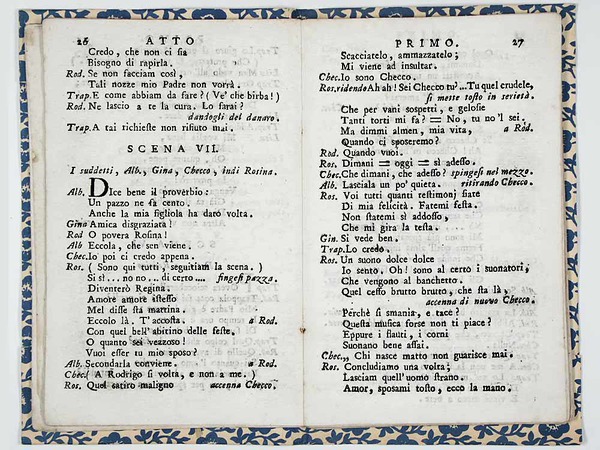 26 ATTO
Credo, che non ci sia
Bisogno di rapirla.
Rod. Se non facciam così,
Tali nozze mio Padre non vorrà.
Trap. E come abbiam da fare? (Ve' che birba!)
Rod. Ne lascio a te la cura. Lo farai?
dandogli del danaro.
Trap. A tai richieste non rifiuto mai.
SCENA VII.
I suddetti, Alb., Gina, Checco, indi Rosina.
Alb. DIce bene il proverbio:
Un pazzo ne fà cento.
Anche la mia figliola ha dato volta.
Gina Amica disgraziata!
Rod O povera Rosina!
Alb Eccola, che sen viene.
Chec. Io poi ci credo appena.
Ros. (Sono qui tutti, seguitiam la scena.)
Si sì!... no no... di certo.... fingesi pazza.
Diventerò Regina.
Amore amore istesso
Mel disse sta mattina.
Eccolo là. T'accosta. a Rod.
Con quel bell'abitino delle feste.
O quanto sei vezzoso!
Vuoi esser tu mio sposo?
Alb. Secondarla conviene. a Rod.
Chec. (A Rodrigo si volta, e non a me.)
Ros. Quel satiro maligno accenna Checco.
PRIMO. 27
Scacciatelo, ammazzatelo;
Mi viene ad insultar.
Chec. Io sono Checco.
Ros. ridendo Ah ah! Sei Checco tu?...Tu quel crudele,
si mette tosto in serietà.
Che per vani sospetti, e gelosie
Tanti torti mi fa? = No, tu no'l sei.
Ma dimmi almen, mia vita, a Rod.
Quando ci sposeremo?
Rod. Quando vuoi.
Ros. Dimani = oggi = sì adesso.
Chec. Che dimani, che adesso? spingesi nel mezzo.
Alb. Lasciala un po' quieta. ritirando Checco.
Ros. Voi tutti quanti testimonj siate
Di mia felicità. Fatemi festa.
Non statemi sì addosso,
Che mi gira la testa.
Gin. Si vede ben.
Trap. Lo credo.
Ros. Un suono dolce dolce
Io sento. Oh! sono al certo i suonatori,
Che vengono al banchetto.
Quel ceffo brutto brutto, che sta là,
accenna di nuovo Checco.
Perchè si smania, e tace?
Questa musica forse non ti piace?
Eppure i flauti, i corni
Suonano bene assai.
Chec. ,, Chi nasce matto non guarisce mai.
Ros. Concludiamo una volta;
Lasciam quell'uomo strano.
Amor, sposami tosto, ecco la mano.